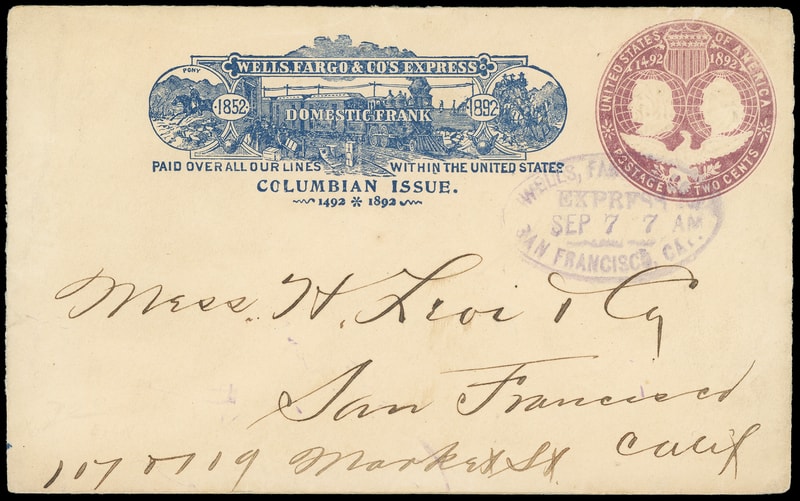 WELLS, FARGO & CO'S EXPRESS
PONY
1852
DOMESTIC FRANK
1892
PAID OVER ALL OUR LINES WITHIN THE UNITED STATES
COLUMBIAN ISSUE.
1492 * 1892
UNITED STATES OF AMERICA
1492 1892
POSTAGE TWO CENTS
WELLS, FAR
EXPRESS
SEP 7 7 AM
SAN FRANCISCO, CAL.
Mess. H. Levi & Co
San Francisco
Calif
117 & 119 Market St.